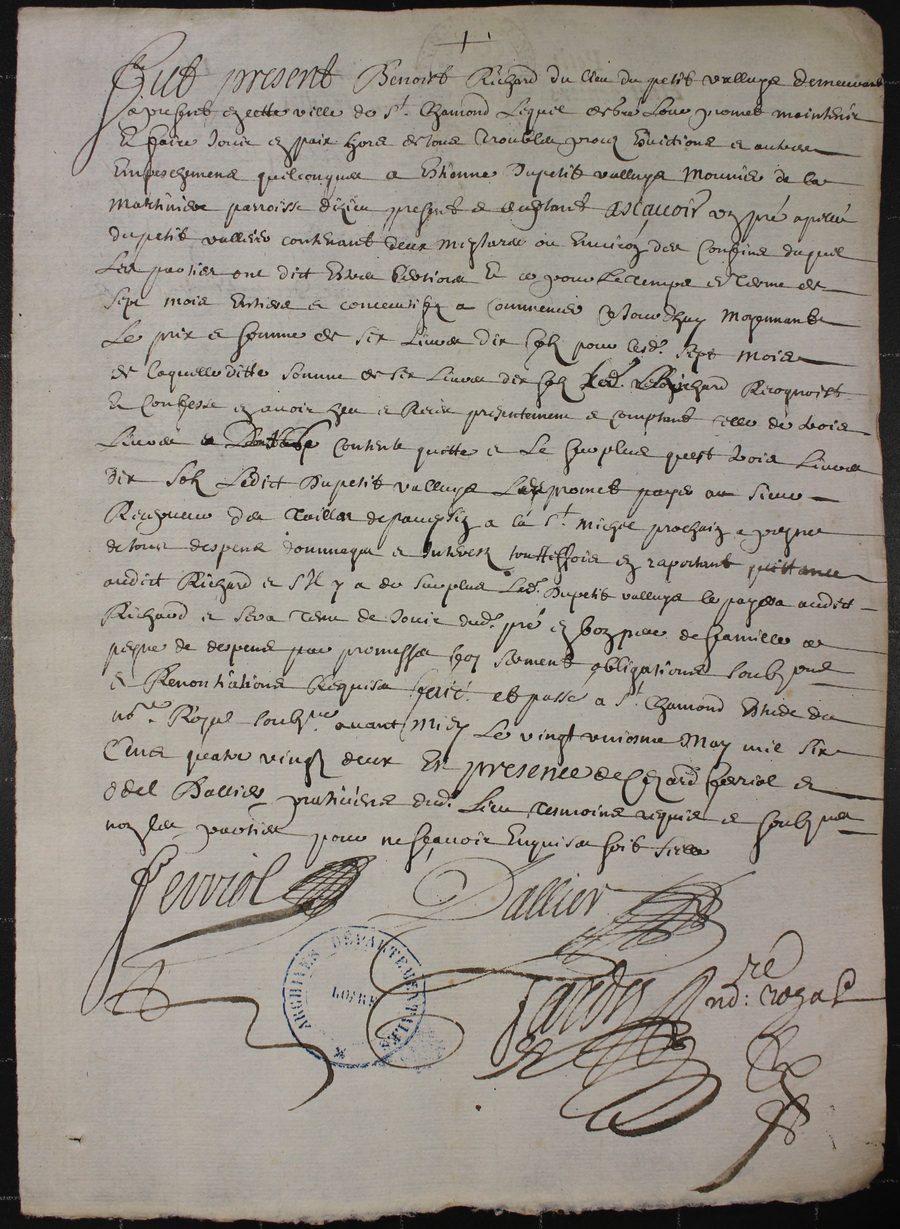 Fut present Benoist Richard du lieu du petit valluys demeurant
a present en cette ville de St. Chamond Lequel de promet maintenir
Et faire Jouir en paix hors de tous troubles evictions et autres
Empeschemens quelconques a Estienne Dupetit valluys Mounier de la
Martiniere parroisse d'izieu present et acceptant ascavoir un pré apellé
du petit vallluys contenant deux ou Environ des Confins duquel
Les parties ont dict Estre Et ce pour le temps et terme de
Sept mois Entiers et consecutifz a Commencer Ce Jourdhuy Moyennant
Le prix et somme de six Livres dix solz pour lesd. sept mois
de laquelle ditte somme de six Livres dix solz Led. Richard Recognoist
Et Confesse en avoir heu et Receu presentement et comptant celle de trois
Livres Contente quitte et Le surplus quest trois Livres
dix solz Ledict Dupetit valluys promet payer au sieur
Recepveur des Tailles a la St. Michel prochain a peyne
de tous despens dommages et Interestz touttesfois en raportant quittance
audict Richard et s'Il y a du surplus Led. Dupetit valluys le payera audict
Richard et sera tenu de Jouir dud. pré en bon pere de famille a
peyne de despens par promesses foy serment obligations soubzmis
et Renontiations Requises faict et passé a St. Chamond Estude du
nore. Royal soubzné avant Midy Le vingt uniesme May mil six
Cens quatre vingtz deux En presence de Ferriol et
Dallier praticiens dud. Lieu tesmoins requis et soubznés
non les parties pour ne sçavoir Enquises soit scellé
Ferriol Dallier
Jardin ndre: royal
ARCHIVES DÉPARTEMENTALES
LOIRE